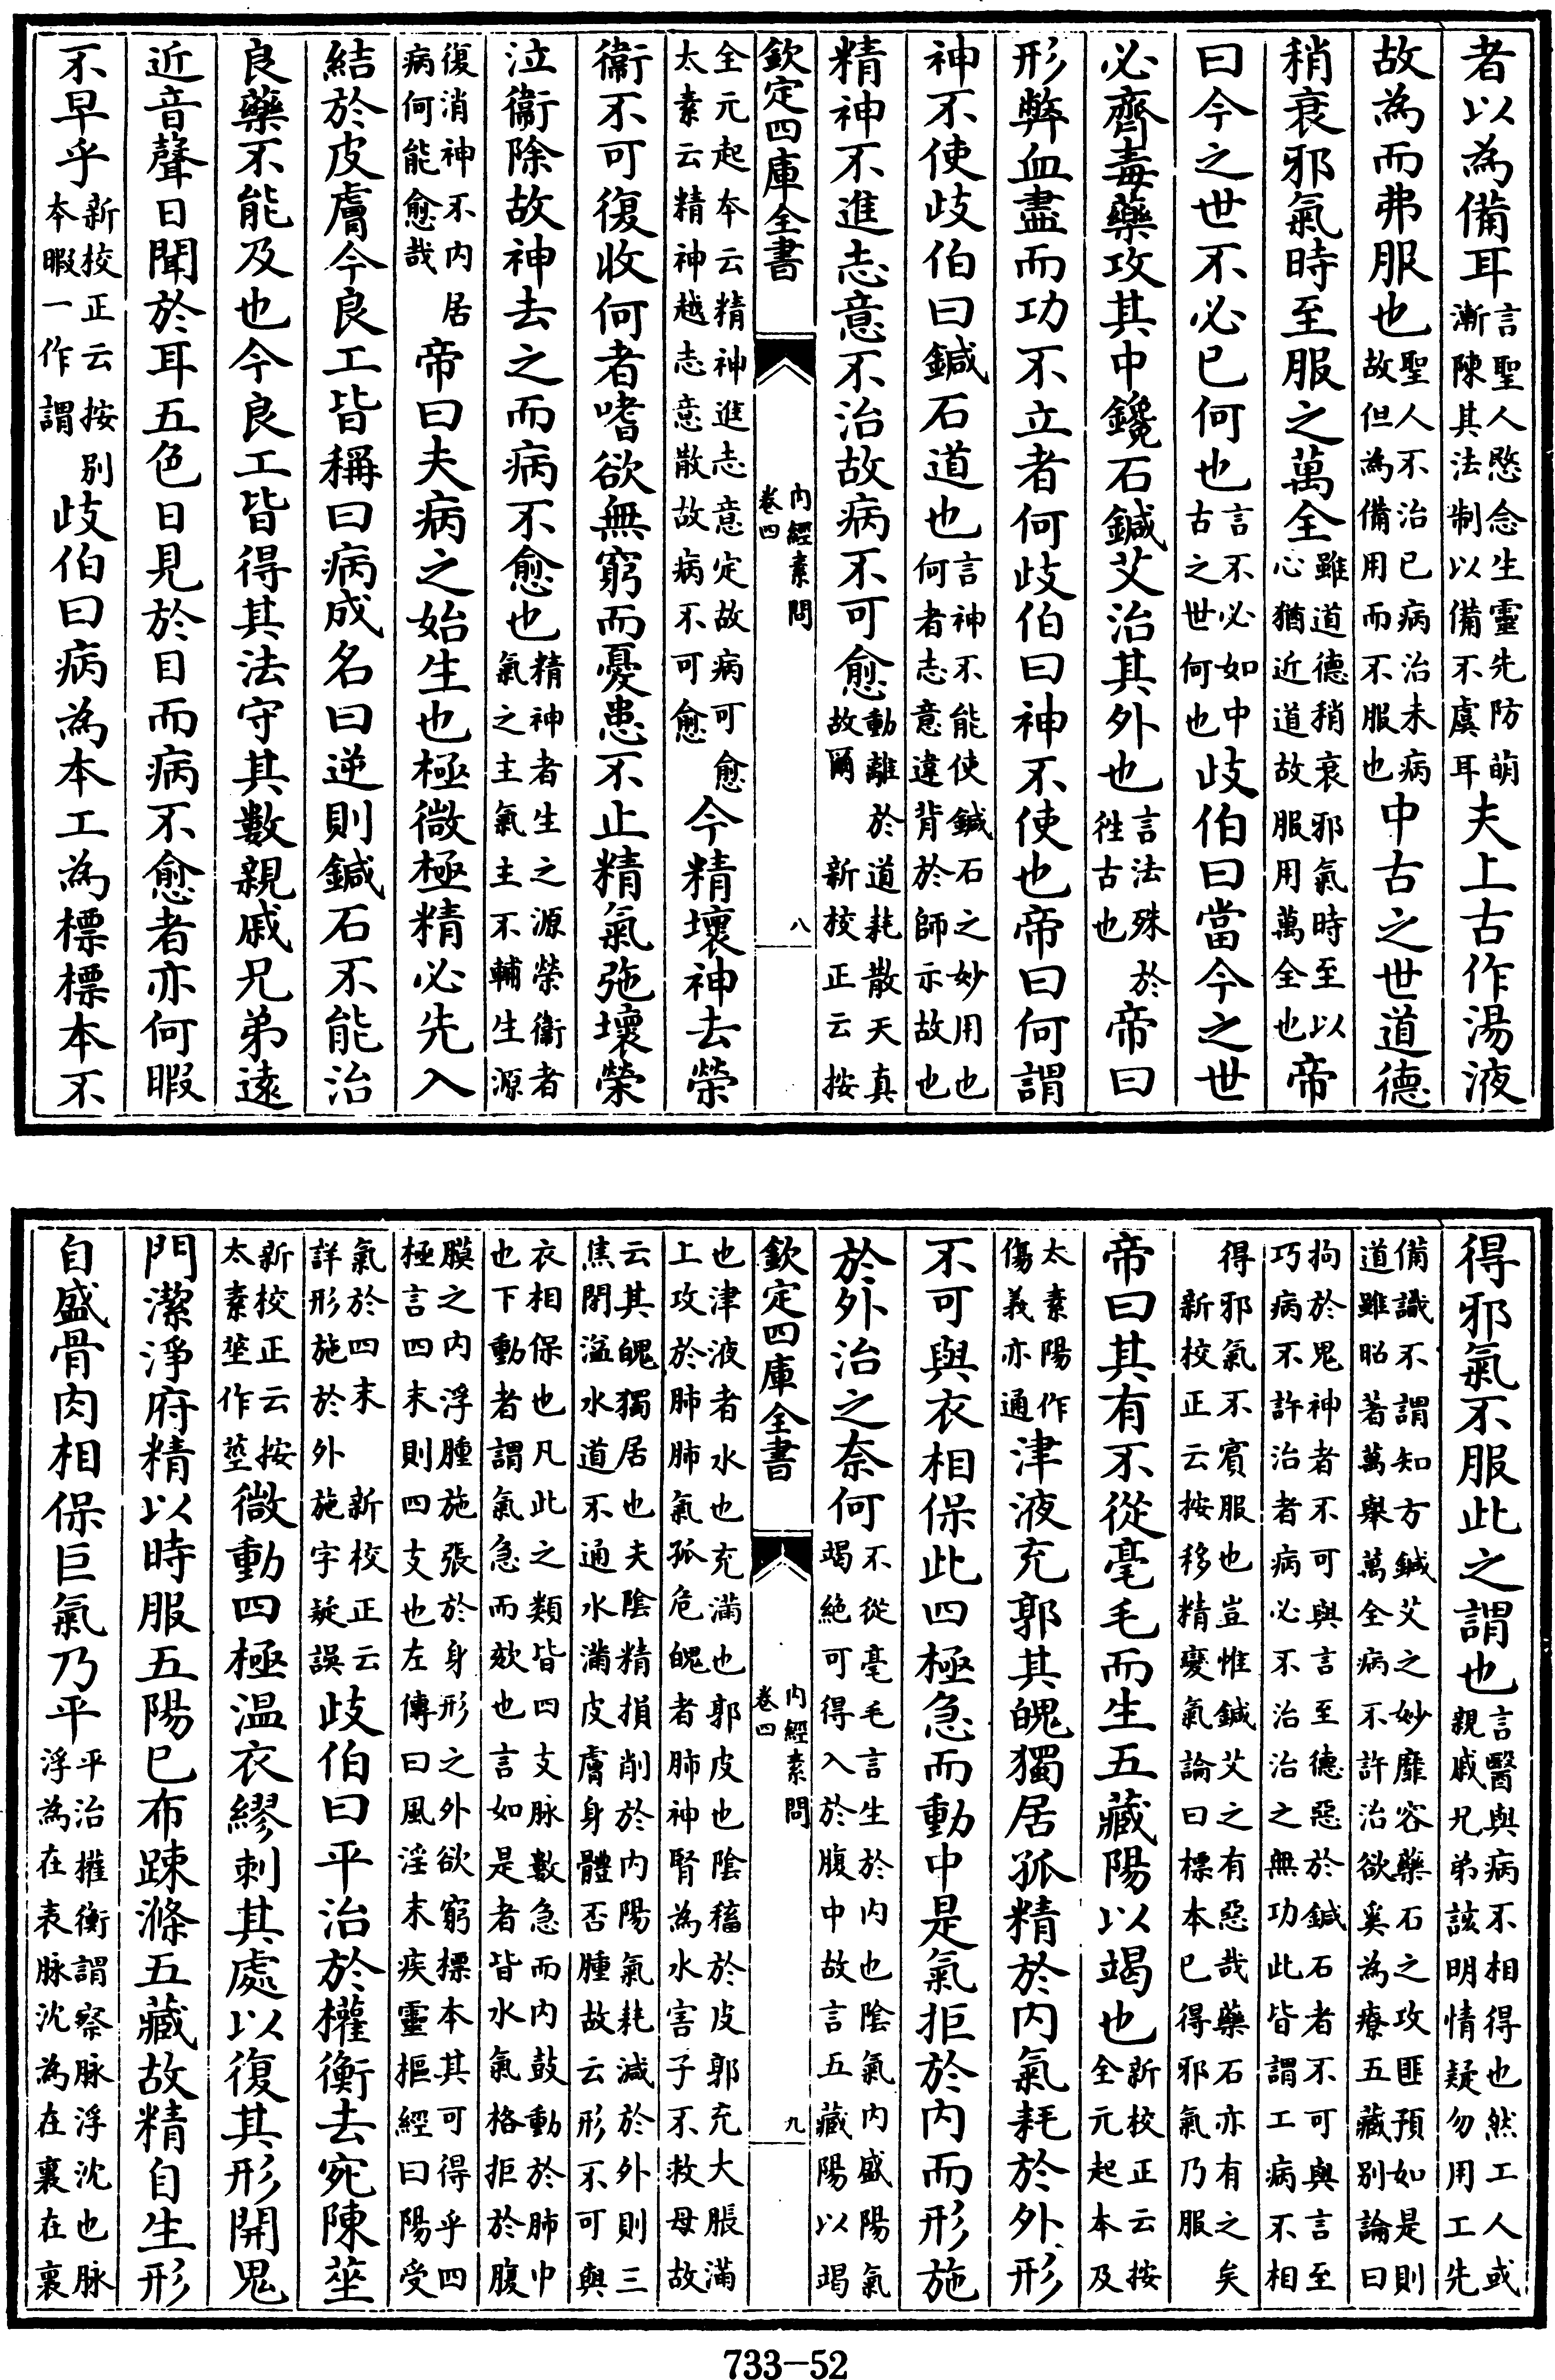 者以為備耳言聖人愍念生靈先防萌漸陳其法制以備不虞耳夫上古作湯液
故為而弗服也聖人不治已病治未病故但為備用而不服也中古之世道德
稍衰邪氣時至服之萬全雖道德稍衰邪氣時至以心猶近道故服用萬全也帝
曰今之世不必已何也言不必如中古之世何也歧伯曰當今之世
必齊毒藥攻其中鑱石鍼艾治其外也言法殊於徃古也帝曰
形弊血盡而功不立者何歧伯曰神不使也帝曰何謂
神不使歧伯曰鍼石道也言神不能使鍼石之妙用也何者志意違背於師示故也
精神不進志意不治故病不可愈動離於道耗散天真故爾 新校正云按
欽定四庫全書 內經素問 卷四 八
全元起本云精神進志意定故病可愈太素云精神越志意散故病不可愈今精壞神去榮
衞不可復收何者嗜欲無窮而憂患不止精氣弛壞榮
泣衞除故神去之而病不愈也精神者生之源榮衞者氣之主氣主不輔生源
復消神不內居病何能愈哉帝曰夫病之始生也極微極精必先入
結於皮膚今良工皆稱曰病成名曰逆則鍼石不能治
良藥不能及也今良工皆得其法守其數親戚兄弟遠
近音聲日聞於耳五色日見於目而病不愈者亦何暇
不早乎新校正云按別本暇一作謂歧伯曰病為本工為標標本不
得邪氣不服此之謂也言醫與病不相得也然工人或親戚兄弟該明情疑勿用工先
備識不謂知方鍼艾之妙靡容藥石之攻匪預如是則道雖昭著萬舉萬全病不許治欲奚為療五藏別論曰
拘於鬼神者不可與言至德惡於鍼石者不可與言至巧病不許治者病必不治治之無功此皆謂工病不相
得邪氣不賓服也豈惟鍼艾之有惡哉藥石亦有之矣 新校正云按移精變氣論曰標本已得邪氣乃服
帝曰其有不從毫毛而生五藏陽以竭也新校正云按全元起本及
太素陽作傷義亦通津液充郭其魄獨居孤精於內氣耗於外形
不可與衣相保此四極急而動中是氣拒於內而形施
於外治之奈何不從毫毛言生於內也陰氣內盛陽氣竭絕可得入於腹中故言五藏陽以竭
欽定四庫全書 內經素問 卷四 九
也津液者水也充滿也郭皮也陰穡於皮郭充大脹滿上攻於肺肺氣孤危魄者肺神腎為水害子不救母故
云其魄獨居也夫陰精損削於內陽氣耗減於外則三焦閉溢水道不通水滿皮膚身體否腫故云形不可與
衣相保也凡此之類皆四支脉數急而內鼓動於肺中也下動者謂氣急而欬也言如是者皆水氣格拒於腹
膜之內浮腫施張於身形之外欲窮標本其可得乎四極言四末則四支也左傳曰風淫末疾靈樞經曰陽受
氣於四末 新校正云詳形施於外施字疑誤歧伯曰平治於權衡去宛陳莝
新校正云按太素莝作莖微動四極温衣繆刺其處以復其形開鬼
門潔淨府精以時服五陽已布疎滌五藏故精自生形
自盛骨肉相保巨氣乃平平治權衡謂察脉浮沈也脉浮為在表脉沈為在裏在裏
733-52